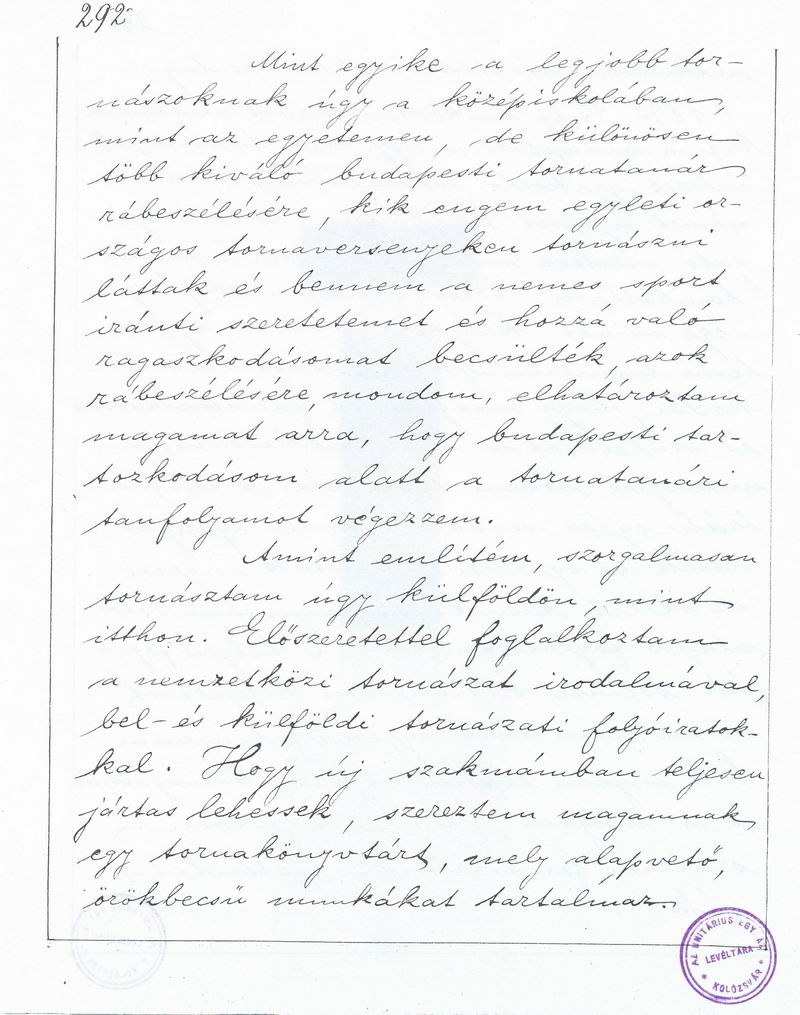 292
Mint egyike a legjobb tor-
nászoknak úgy a középiskolában,
mint az egyetemen, de különösen
több kiváló budapesti tornatanár
rábeszélésére, kik engem egyleti or-
szágos tornaversenyeken tornászni
láttak és bennem a nemes sport
iránti szeretetemet és hozzá való
ragaszkodásomat becsülték, azok
rábeszélésére, mondom, elhatároztam
magamat arra, hogy budapesti tar-
tozkodásom alatt a tornatanári
tanfolyamot végezzem.
Amint említém, szorgalmasan
tornásztam úgy külföldön, mint
itthon. Előszeretettel foglalkoztam
a nemzetközi tornászat irodalmával,
bel- és külföldi tornászati folyóiratok-
kal. Hogy új szakmámban teljesen
jártas lehessek, szereztem magamnak
egy tornakönyvtárt, mely alapvető,
örökbecsü munkákat tartalmaz.
AZ UNITÁRIUS EGYHÁZ
LEVÉLTÁRA
* KOLOZSVÁR *